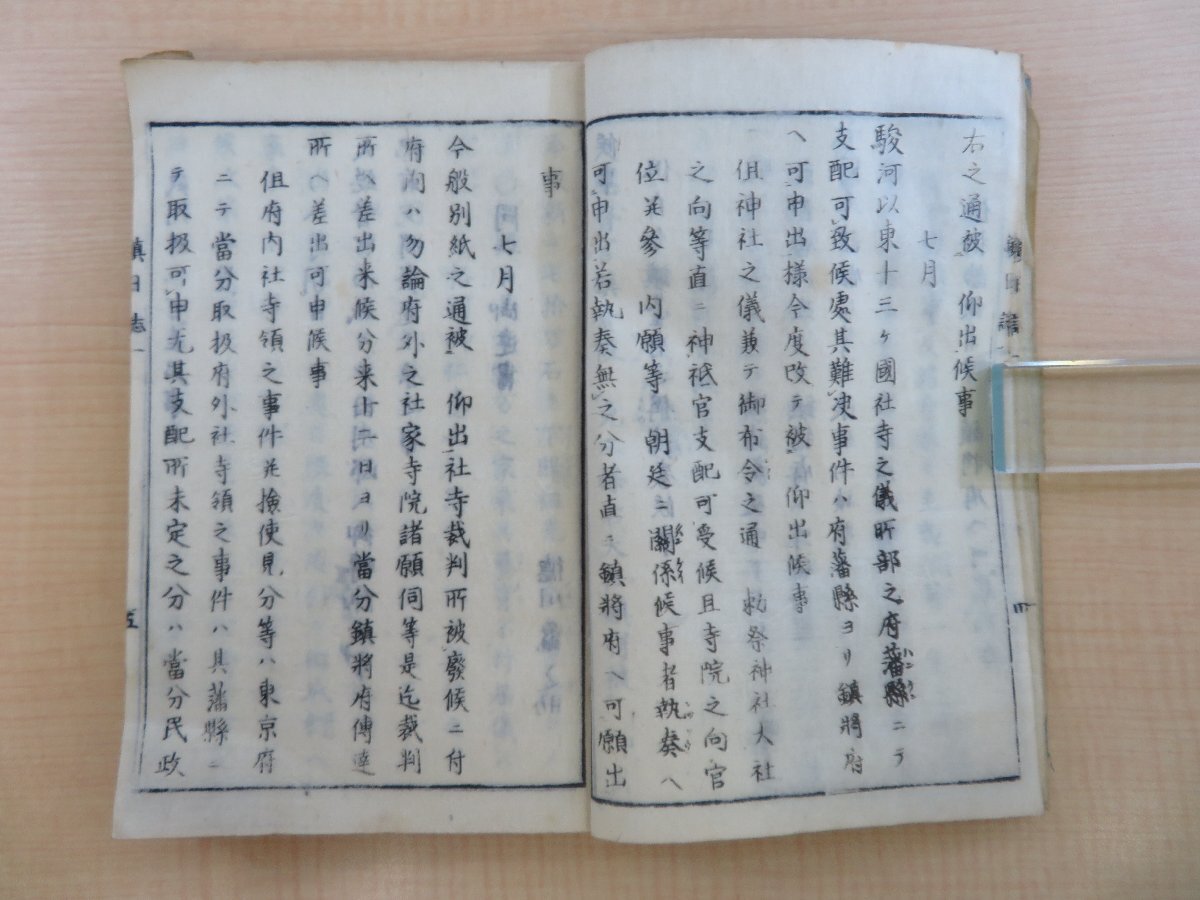 右之通被　仰出候事
七月
駿河以東十三ヶ國社寺之儀所部之府藩縣ニテ
支配可致候處其難決事件ハ府藩縣ヨリ鎮將府
ヘ可申出様今度改テ被　仰出候事
但神社之儀兼テ御布令之通　勅祭神社大社
之向等直ニ神祇官支配可受候且寺院之向官
位并參　内願等　朝廷ニ關係候事者執奏ヘ
可申出若執奏無之分者直ニ鎮將府ヘ可願出
事
七月
今般別紙之通被　仰出社寺裁判所被廢候ニ付
府内ハ勿論府外之社家寺院諸願伺等是迄裁判
所ヘ差出来候分来十二日ヨリ當分鎮將府傳達
所ヘ差出可申候事
但府内社寺領之事件并撿使見分等ハ東京府
ニテ當分取扱府外社寺領之事件ハ其藩縣ニ
テ取扱可申尤其支配所未定之分ハ當分民政
鎮日誌一
四
鎮日志一
五